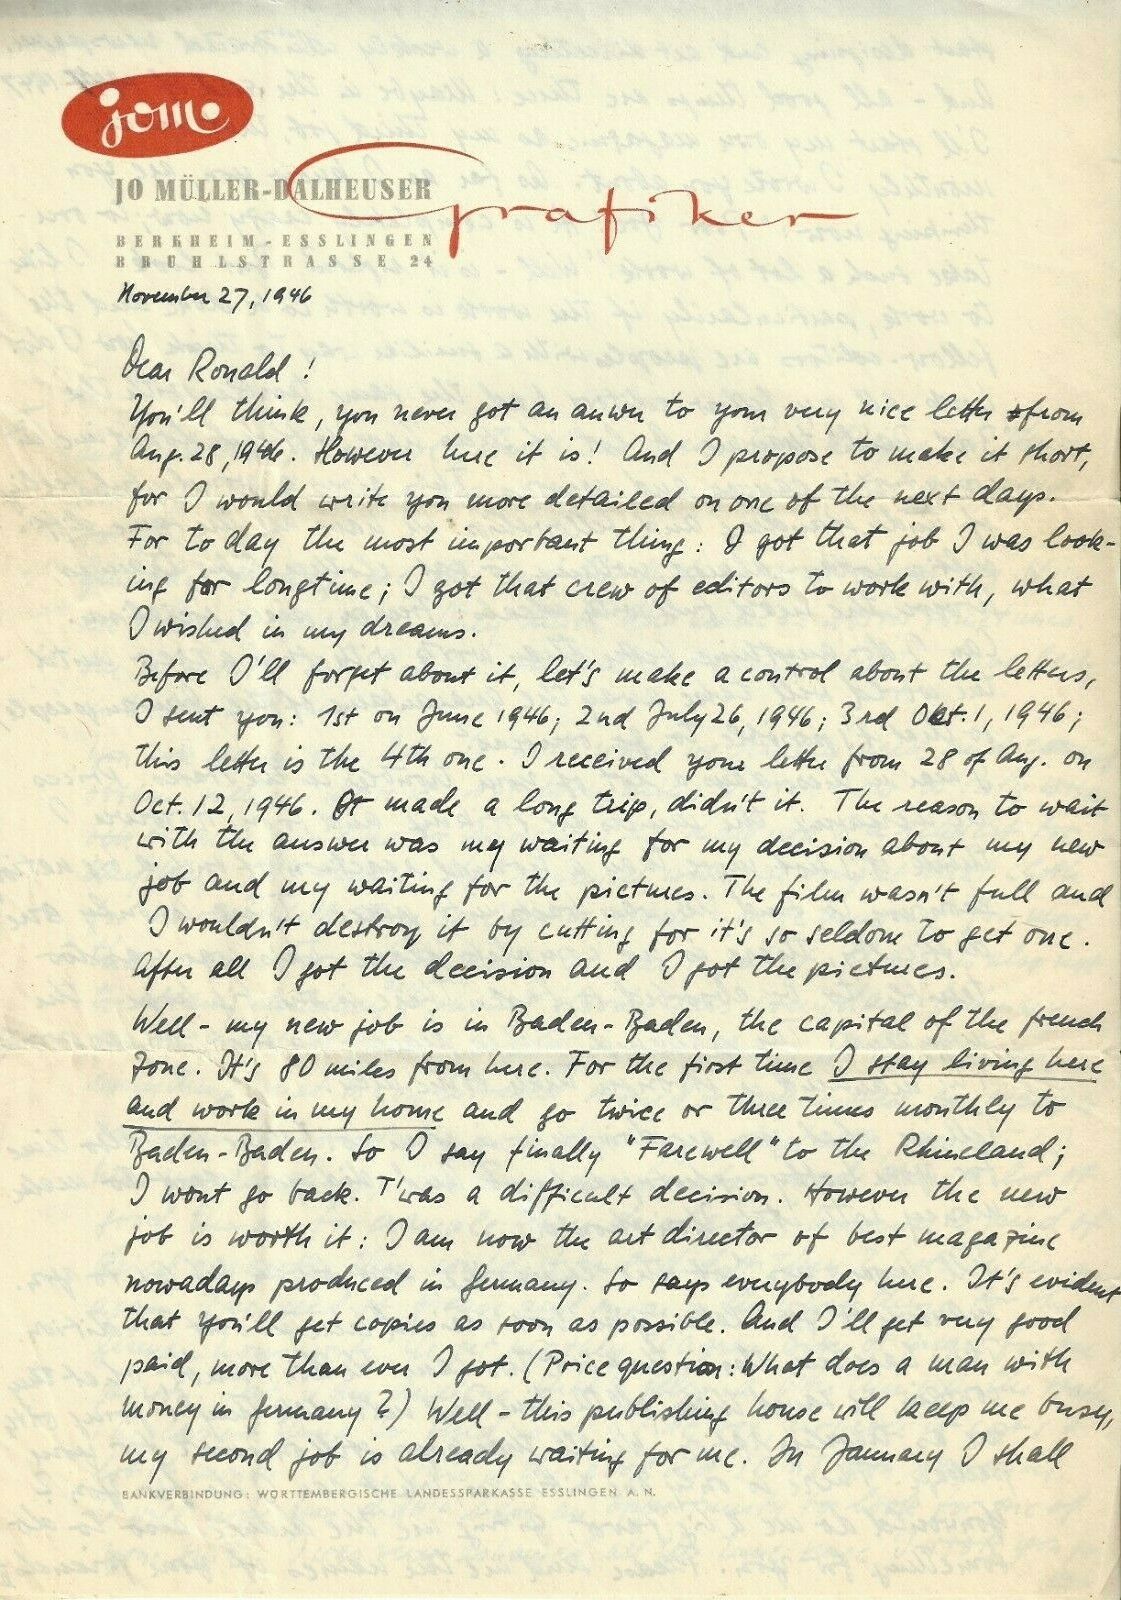 jom.
JO MÜLLER-DALHEUSER
Grafiker
BERKHEIM-ESSLINGEN
BRÜHLSTRASSE 24
November 27, 1946
Dear Ronald!
You'll think, you never got an anwer to your very nice letter from
Aug. 28, 1946. However here it is! And I propose to make it short,
for I would write you more detailed on one of the next days.
For to day the most important thing: I got that job I was look-
ing for longtime; I got that crew of editors to work with, what
I wished in my dreams.
Before I'll forget about it, let's make a control about the letters,
I sent you: 1st on June 1946; 2nd July 26, 1946; 3rd Okt. 1, 1946;
this letter is the 4th one. I received your letter from 28 of Aug. on
Oct. 12, 1946. It made a long trip, didn't it. The reason to wait
with the answer was my waiting for my decision about my new
job and my waiting for the pictures. The film wasn't full and
I wouldn't destroy it by cutting for it's so seldom to get one.
After all I got the decision and I got the pictures.
Well - my new job is in Baden-Baden, the capital of the french
zone. It's 80 miles from here. For the first time I stay living here
and work in my home and go twice or three times monthly to
Baden-Baden. So I say finally "Farewell" to the Rhineland;
I wont go back. T'was a difficult decision. However the new
job is worth it: I am now the art director of best magazine
nowadays produced in Germany. So says everybody here. It's evident
that you'll get copies as soon as possible. And I'll get very good
paid, more than ever I got. (Price question: What does a man with
money in Germany?) Well - this publishing house will keep me busy,
my second job is already waiting for me. In January I shall
BANKVERBINDUNG: WÜRTTEMBERGISCHE LANDESSPARKASSE ESSLINGEN A. N.